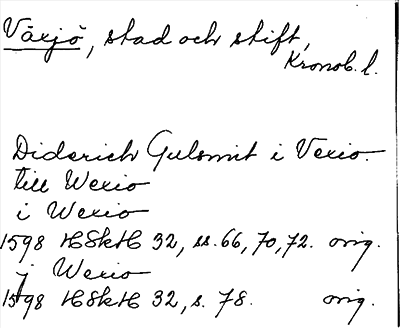 Växjö, stad och stift,
Kronob. l.
Diderich Gulsmit i Vexio.
till Wexio
i Wexio
1598 HSkH 32, ss. 66, 70, 72. orig.
j Wexio
1598 HSkH 32, s. 78. orig.